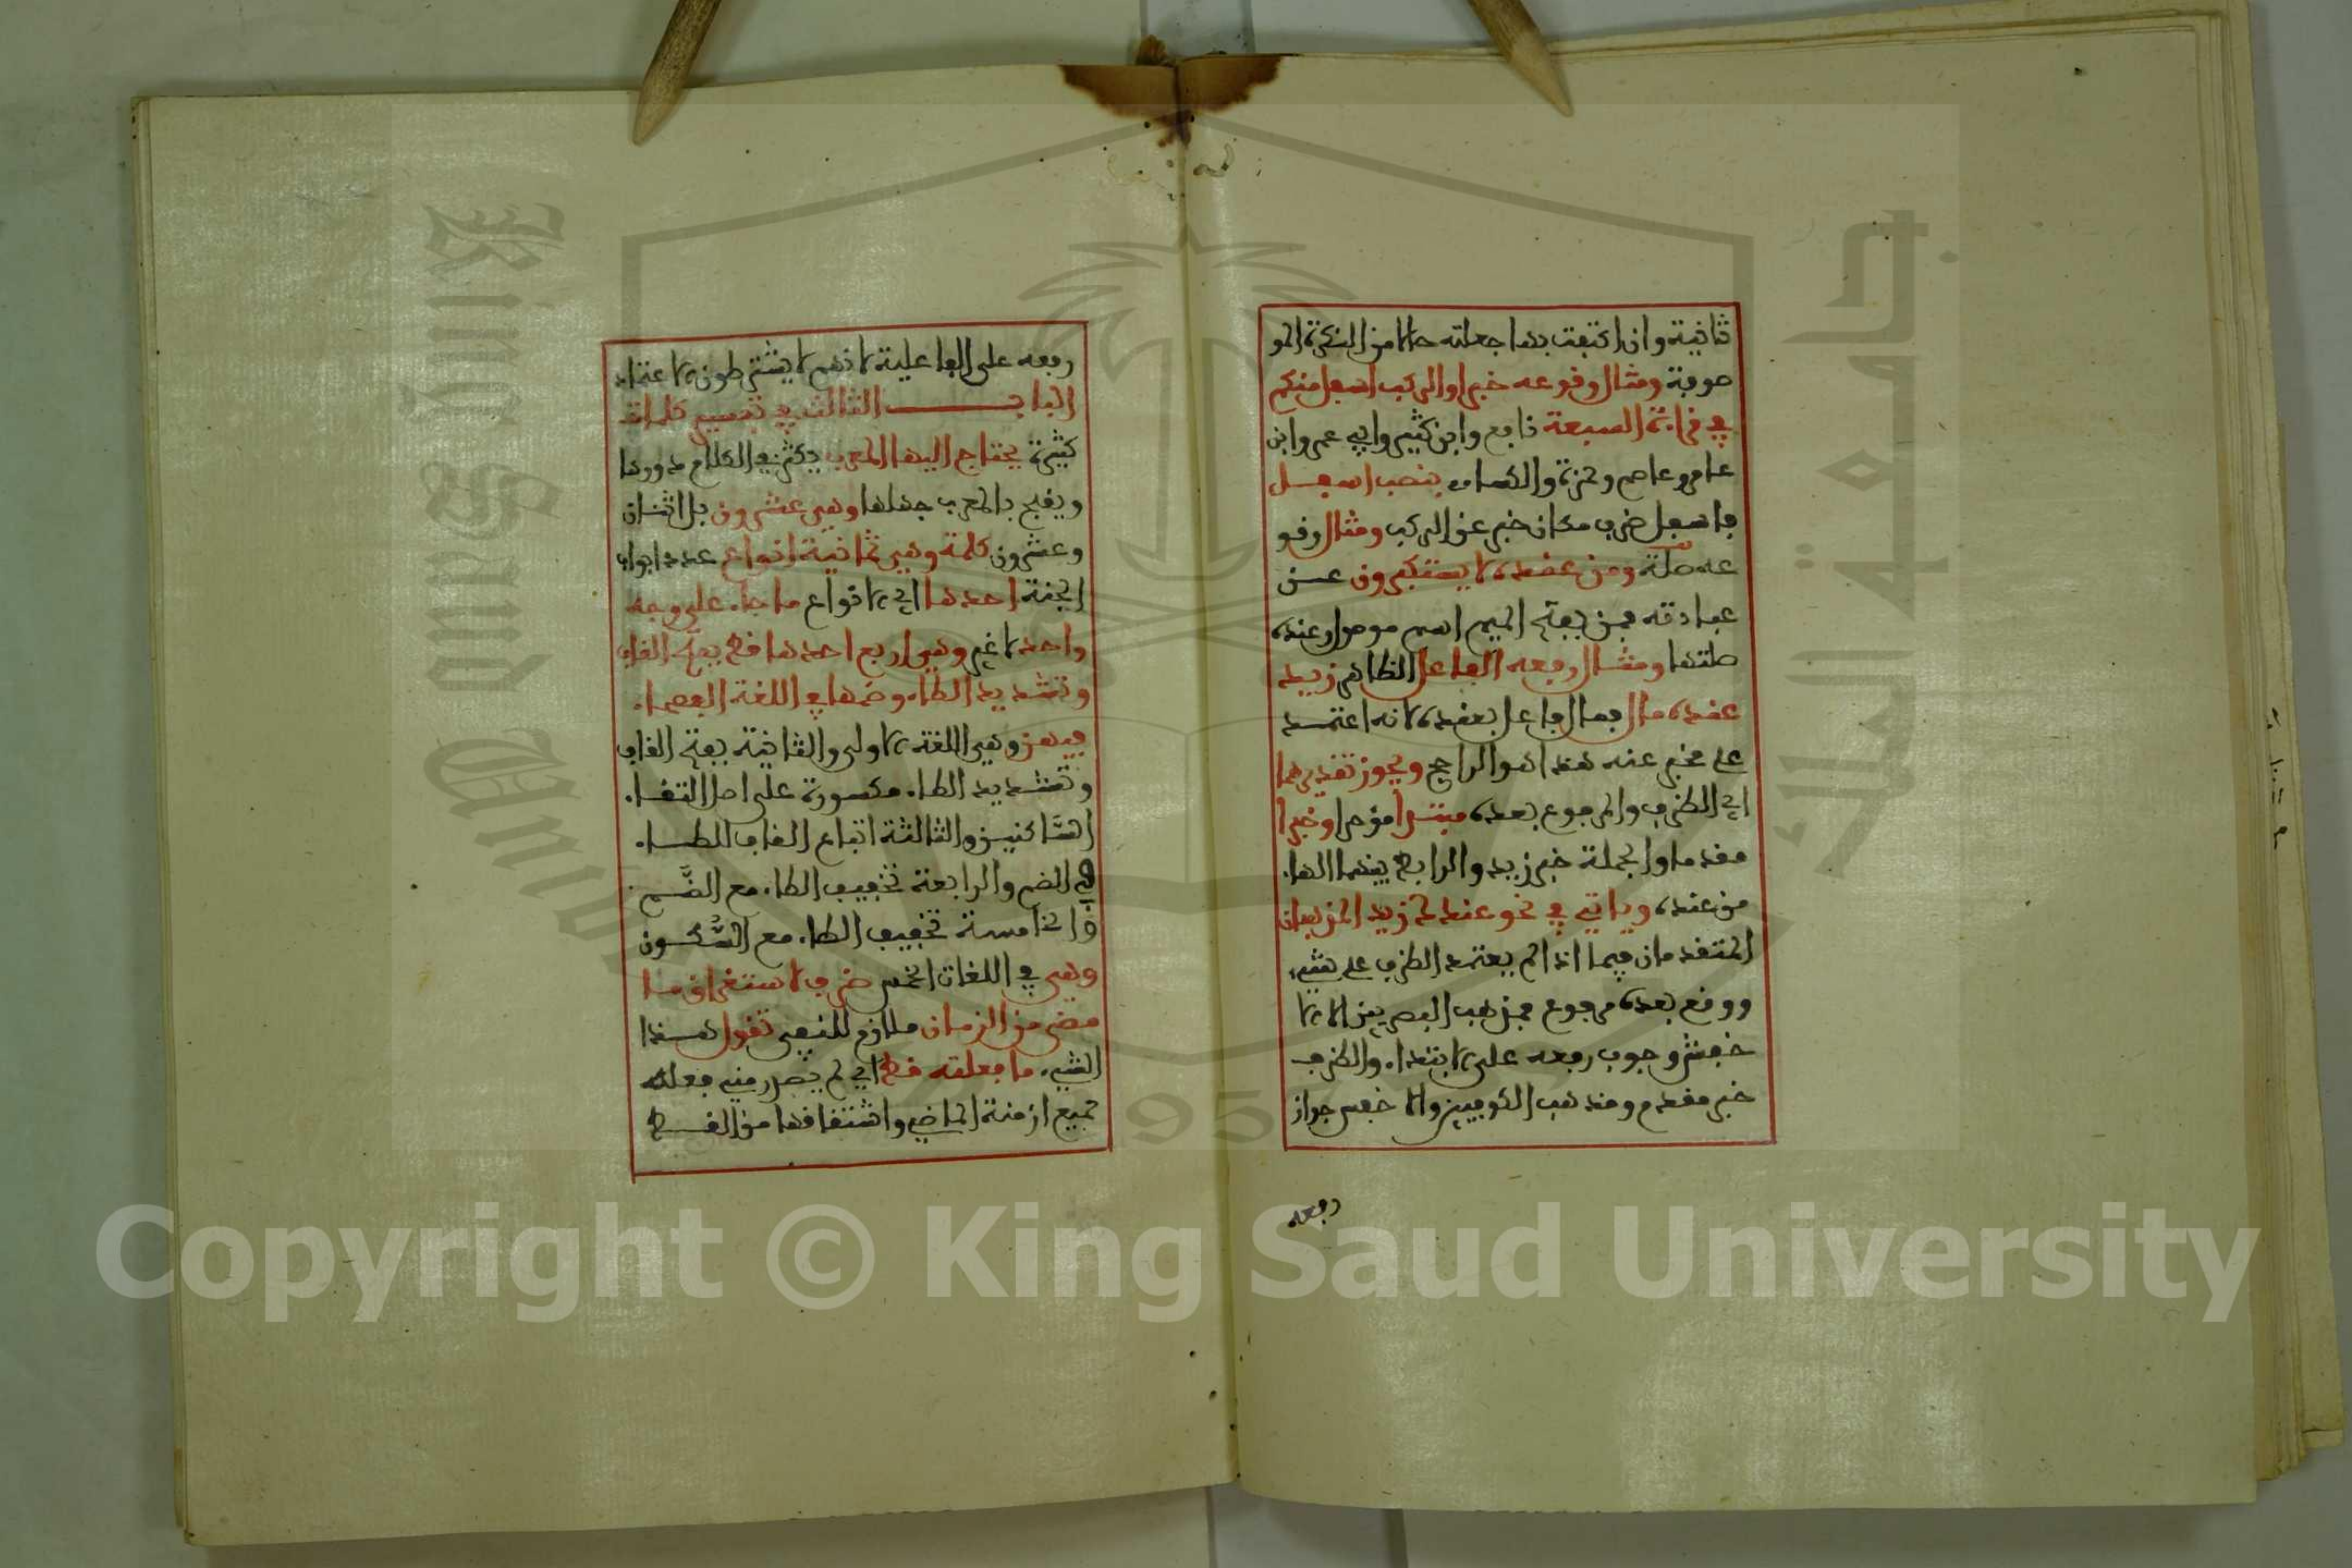 ثانية وان اكتفيت بها جعلته حالا من النكرة المو
صوفة ومثال وقوعه خبرا والركب اسفل منكم
في قراءة السبعة نافع وابن كثير وابي عمرو وابن
عامر وعاصم وحمزة والكساءي بنصب اسفل
فاسفل ظرف مكان خبر عن الركب ومثال وقو
عه صلة ومن عنده لا يستكبرون عن
عبادته فمن بفتح الميم اسم موصول وعنده
صلتها ومثال رفعه الفاعل الظاهر زيد
عنده مال فمال فاعل بعنده لانه اعتمد
على مخبر عنه هذا هو الراجح ويجوز تقديرهما
اي الظرف والمرفوع بعده مبتدا مؤخرا وخبرا
مقدما والجملة خبر زيد والرابط بينهما الهاء
من عنده وياتي في نحو عندك زيد المذهبان
المتقدمان فيما اذا لم يعتمد الظرف على شيء
ووقع بعده مرفوع فمذهب البصريين الا الا
خفش وجوب رفعه على الابتداء والظرف
خبر مقدم ومذهب الكوفيين والاخفش جواز
رفعه
رفعه على الفاعلية لانهم لا يشترطون الاعتماد
الباب الثالث في تفسير كلمات
كثيرة يحتاج اليها المعرب يكثر في الكلام دورها
ويقبح بالمعرب جهلها وهي عشرون بل اثنان
وعشرون كلمة وهي ثمانية انواع عدد ابواب
الجنة احدها اي الانواع ما جاء على وجه
واحد لا غير وهي اربع احدها قط بفتح القاف
وتشديد الطاء وضمها في اللغة الفصحاء
فيهن وهي اللغة الاولى والثانية بفتح القاف
وتشديد الطاء مكسورة على اصل التقاء
الساكنين والثالثة اتباع القاف للطاء
في الضم والرابعة تخفيف الطاء مع الضم
والخامسة تخفيف الطاء مع السكون
وهي في اللغات الخمس ظرف لاستغراق ما
مضى من الزمان ملازم للنفي تقول هذا
الشيء ما فعلته قط اي لم يصدر مني فعله
جميع ازمنة الماضي واشتقاقها من القط
Copyright © King Saud University
King Saud
جامعة الملك